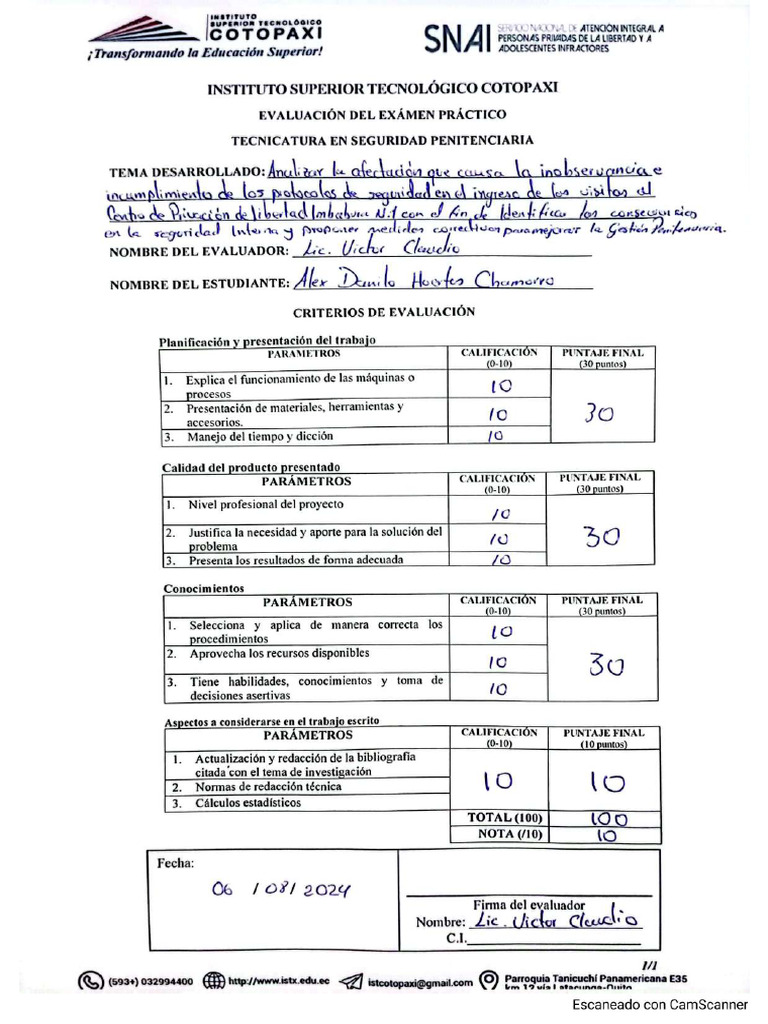 INSTITUTO
SUPERIOR TECNOLÓGICO
COTOPAXI
¡Transformando la Educación Superior!
SNAI
SERVICIO NACIONAL DE ATENCIÓN INTEGRAL A
PERSONAS PRIVADAS DE LA LIBERTAD Y A
ADOLESCENTES INFRACTORES
INSTITUTO SUPERIOR TECNOLÓGICO COTOPAXI
EVALUACIÓN DEL EXÁMEN PRÁCTICO
TECNICATURA EN SEGURIDAD PENITENCIARIA
TEMA DESARROLLADO: Analizar la afectación que causa la inobservancia e
incumplimiento de los protocolos de seguridad en el ingreso de las visitas al
Centro de Privación de libertad Imbabura N.1 con el fin de Identificar las consecuencias
en la seguridad Interna y proponer medidas correctivas para mejorar la Gestión Penitenciaria.
NOMBRE DEL EVALUADOR: Lic. Victor Claudio
NOMBRE DEL ESTUDIANTE: Alex Danilo Huertas Chamorro
CRITERIOS DE EVALUACIÓN
Planificación y presentación del trabajo
PARAMETROS CALIFICACIÓN (0-10) PUNTAJE FINAL (30 puntos)
1. Explica el funcionamiento de las máquinas o procesos 10
2. Presentación de materiales, herramientas y accesorios. 10 30
3. Manejo del tiempo y dicción 10
Calidad del producto presentado
PARÁMETROS CALIFICACIÓN (0-10) PUNTAJE FINAL (30 puntos)
1. Nivel profesional del proyecto 10
2. Justifica la necesidad y aporte para la solución del problema 10 30
3. Presenta los resultados de forma adecuada 10
Conocimientos
PARÁMETROS CALIFICACIÓN (0-10) PUNTAJE FINAL (30 puntos)
1. Selecciona y aplica de manera correcta los procedimientos 10
2. Aprovecha los recursos disponibles 10 30
3. Tiene habilidades, conocimientos y toma de decisiones asertivas 10
Aspectos a considerarse en el trabajo escrito
PARÁMETROS CALIFICACIÓN (0-10) PUNTAJE FINAL (10 puntos)
1. Actualización y redacción de la bibliografía citada con el tema de investigación
2. Normas de redacción técnica 10 10
3. Cálculos estadísticos
TOTAL (100) 100
NOTA (/10) 10
Fecha:
06 / 08 / 2024
Firma del evaluador
Nombre: Lic. Victor Claudio
C.I.
1/1
(593+) 032994400 http://www.istx.edu.ec istcotopaxi@gmail.com Parroquia Tanicuchí Panamericana E35
km 12 vía Latacunga-Quito
Escaneado con CamScanner